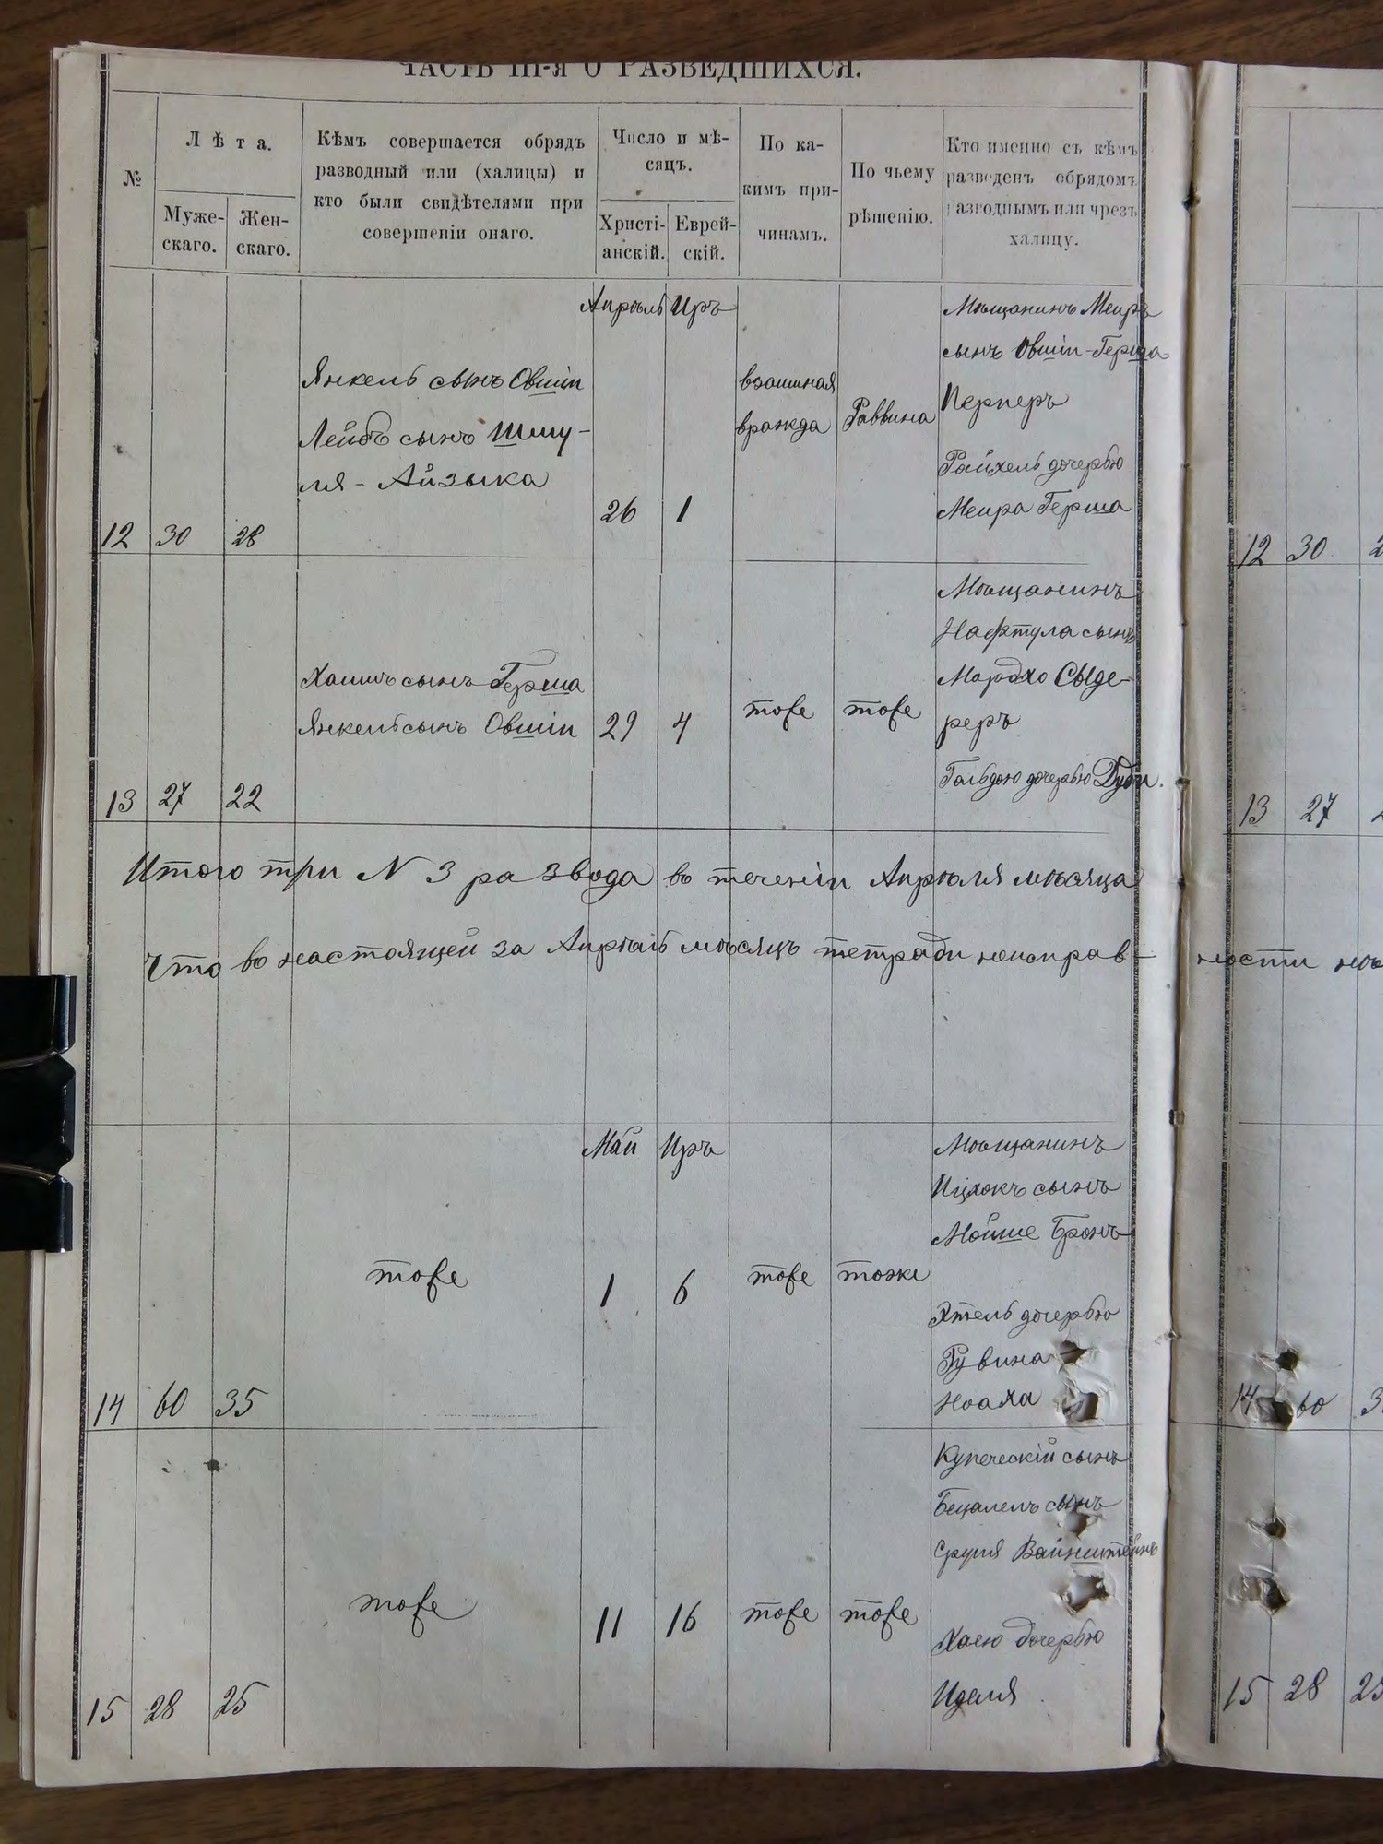 ЧАСТЬ III-я О РАЗВЕДШИХСЯ.
№
Лѣта.
Муже-
скаго.
Жен-
скаго.
Кѣмъ совершается обрядъ
разводный или (халицы) и
кто были свидѣтелями при
совершеніи онаго.
Число и мѣ-
сяцъ.
Христі-
анскій.
Еврей-
скій.
По ка-
кимъ при-
чинамъ.
По чьему
рѣшенію.
Кто именно съ кѣмъ
разведенъ обрядомъ
разводнымъ или чрезъ
халицу.
12 30 28
Янкель сынъ Овшіи
Лейбъ сынъ Шму-
ля - Айзыка
Апрѣль Иръ
26 1
взаимная
вражда
Раввина
Мѣщанинъ Меиръ
сынъ Овшіи-Герша
Перперъ
Райхель дочерью
Меира Герша
12 30
13 27 22
Хаимъ сынъ Герша
Янкель сынъ Овшіи
29 4
тоже
тоже
Мѣщанинъ
Нафтула сынъ
Мордхо Сыде-
реръ
Гольдою дочерью
13 27
Итого три N 3 развода въ теченіи Апрѣля мѣсяца
Что въ настоящей за Апрѣль мѣсяцъ тетради неисправ-
ности
14 60 35
тоже
Май Иръ
1 6
тоже
тоже
Мѣщанинъ
Ицхокъ сынъ
Мойше Бронъ
Этель дочерью
Рувина
Ноаха
14 60
15 28 25
тоже
11 16
тоже
тоже
Купеческій сынъ
Бецалель сынъ
Сруля Вайнштейнъ
Хаею дочерью
Иделя
15 28 25